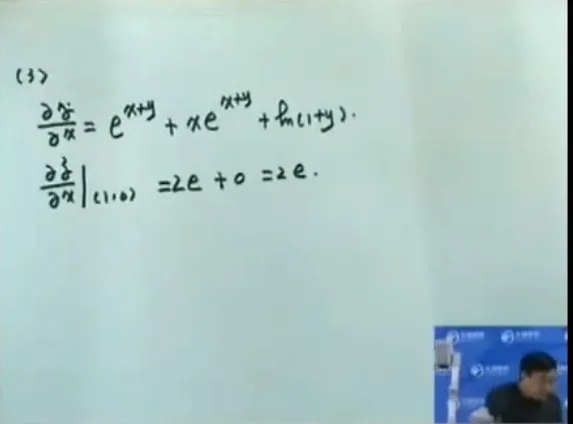 (3)
∂z/∂x = e^{x+y} + xe^{x+y} + ln(1+y).
∂z/∂x|(1,0) = 2e + 0 = 2e.